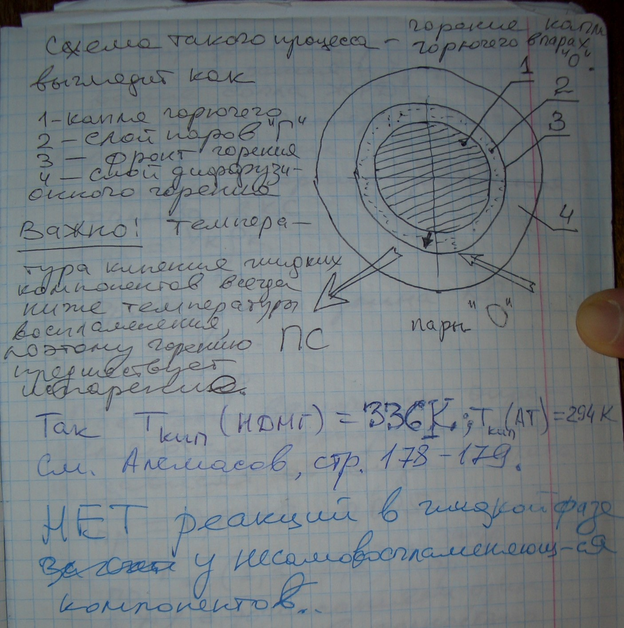 Схема такого процесса – горение капли
горючего в парах
"О".
выглядит как
1 - капля горючего
2 – слой паров "Г"
3 – фронт горения
4 – слой диффузи-
онного горения
Важно! Темпера-
тура кипения жидких
компонентов всегда
ниже температуры
воспламенения,
поэтому горению
предшествует
испарение.
1
2
3
4
ПС
пары "О"
Так Ткип (НДМГ) = 336К.; Ткип (АТ) = 294К
См. Алемасов, стр. 178-179.
НЕТ реакций в жидкой фазе
у несамовоспламеняющ-ся
компонентов..